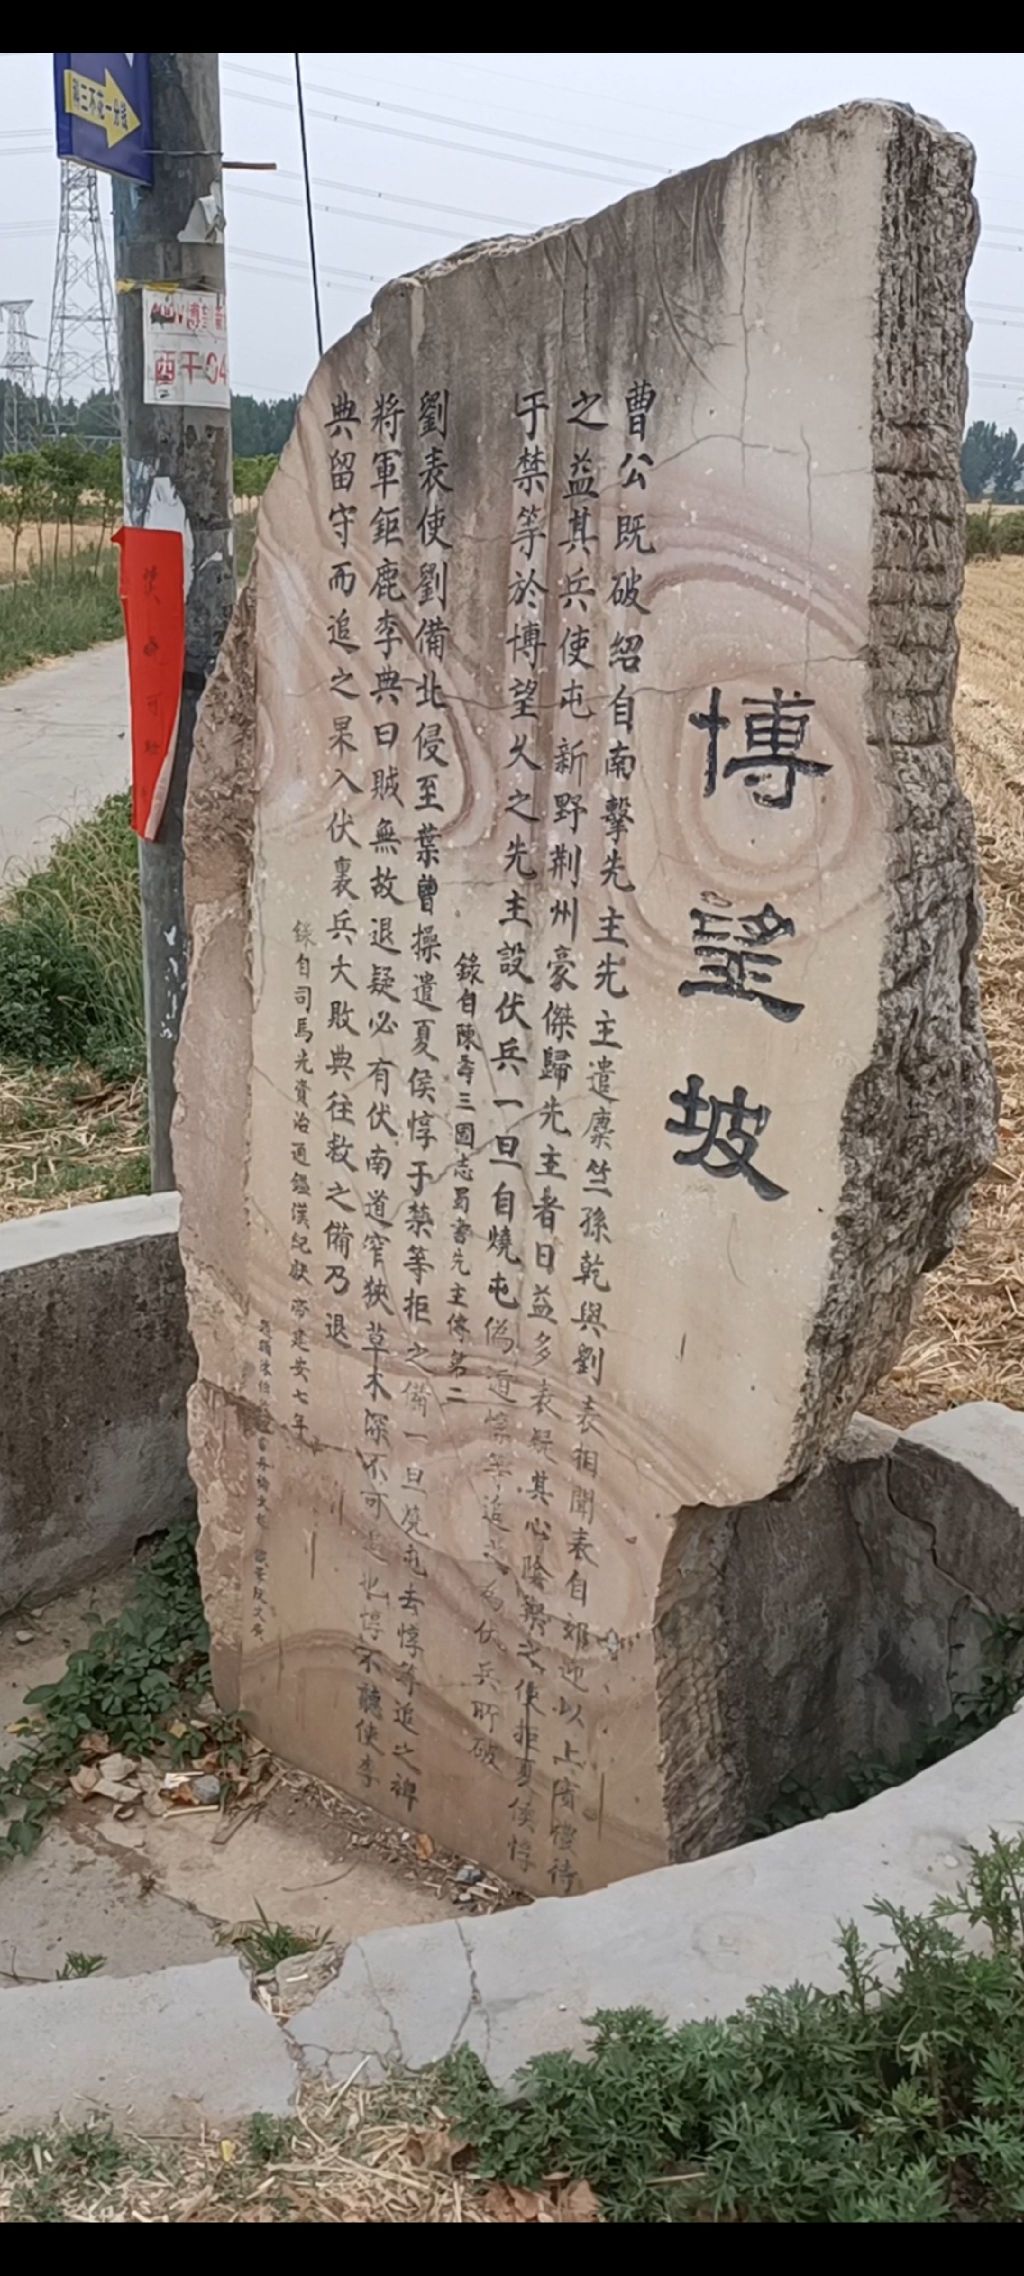 博望坡
曹公既破紹自南擊先主先主遣麋竺孫乾與劉表相聞表自郊迎以上賓禮待
之益其兵使屯新野荆州豪傑歸先主者日益多表疑其心陰禦之使拒夏侯惇
于禁等於博望久之先主設伏兵一旦自燒屯偽遁惇等追之為伏兵所破
錄自陳壽三國志蜀書先主傳第二
劉表使劉備北侵至葉曹操遣夏侯惇于禁等拒之備一旦燒屯去惇等追之裨
將軍鉅鹿李典曰賊無故退疑必有伏南道窄狹草木深不可追也惇不聽使李
典留守而追之果入伏裏兵大敗典往救之備乃退
錄自司馬光資治通鑑漢紀獻帝建安七年
西干04